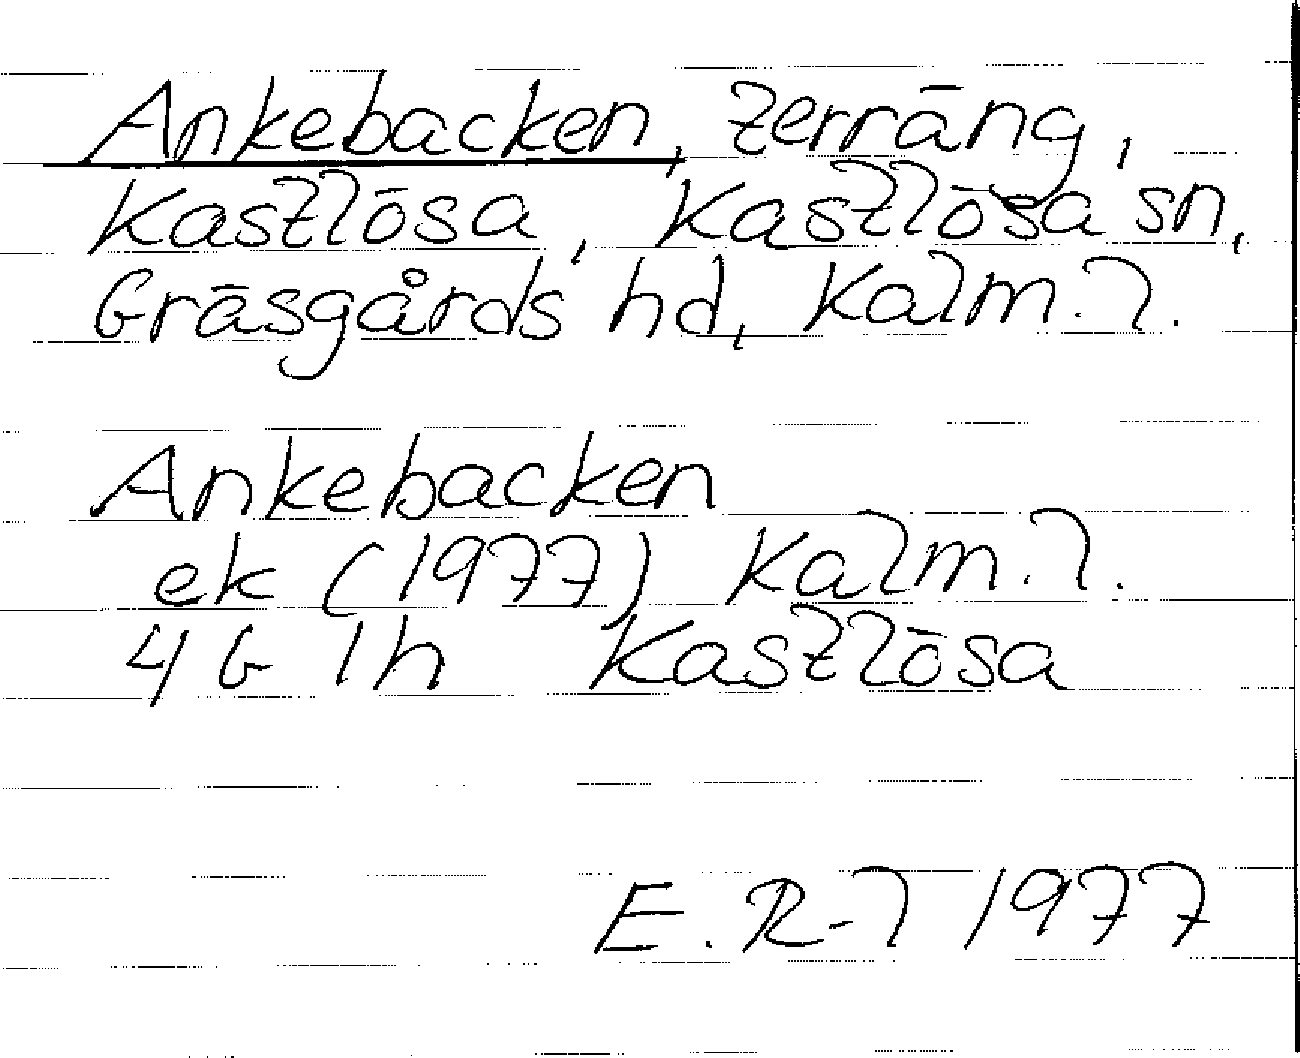 Ankebacken, terräng,
Kastlösa, Kastlösa sn,
Gräsgårds hd, Kalm. l.
Ankebacken
ek (1977) Kalm. l.
4G 1h Kastlösa
E. R-l 1977